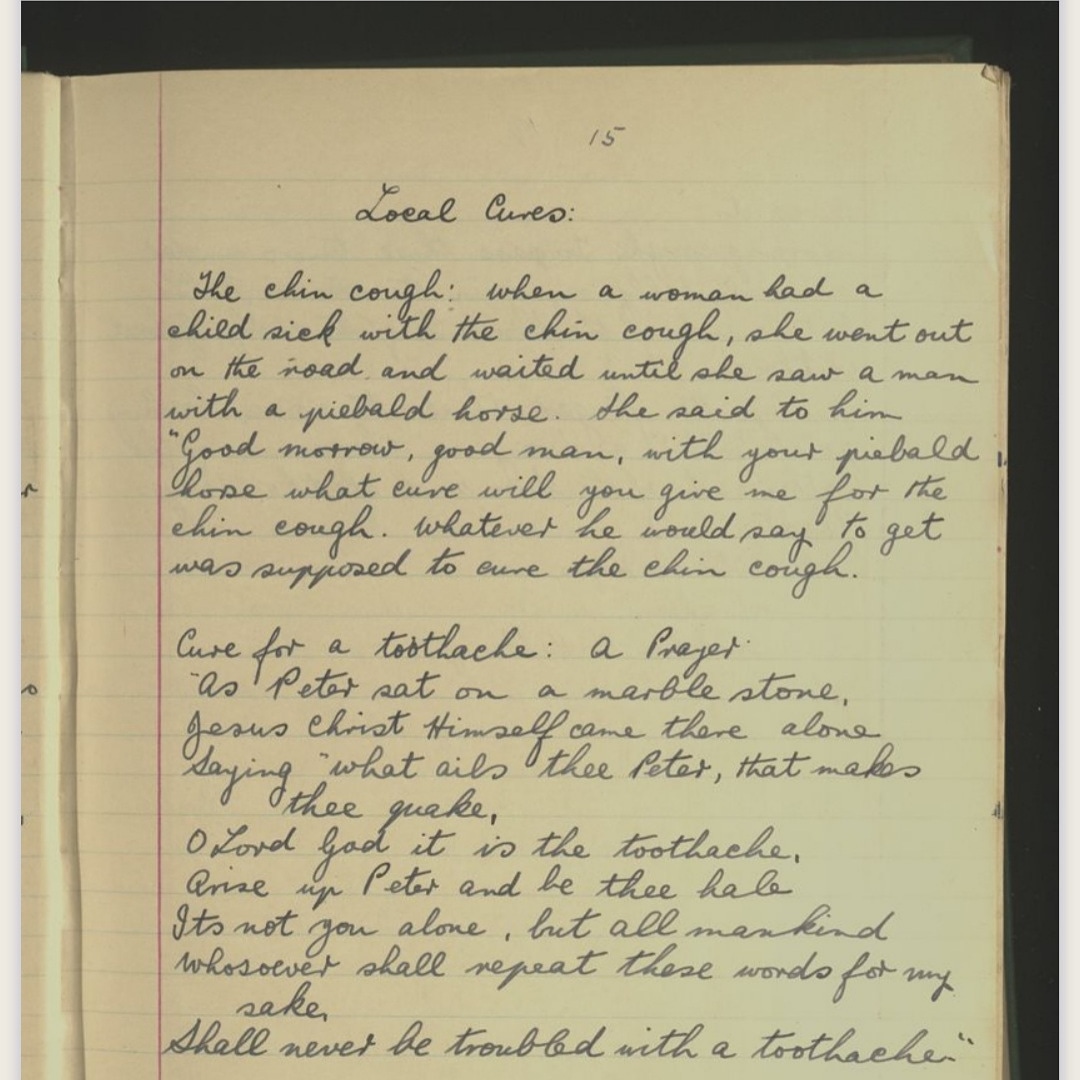 15
Local Cures:
The chin cough: when a woman had a
child sick with the chin cough, she went out
on the road and waited until she saw a man
with a piebald horse. She said to him
"Good morrow, good man, with your piebald
horse what cure will you give me for the
chin cough. Whatever he would say to get
was supposed to cure the chin cough.
Cure for a toothache: A Prayer
"As Peter sat on a marble stone,
Jesus Christ Himself came there alone
Saying "what ails thee Peter, that makes
thee quake,
O Lord God it is the toothache,
Arise up Peter and be thee hale
Its not you alone, but all mankind
Whosoever shall repeat these words for my
sake,
Shall never be troubled with a toothache."